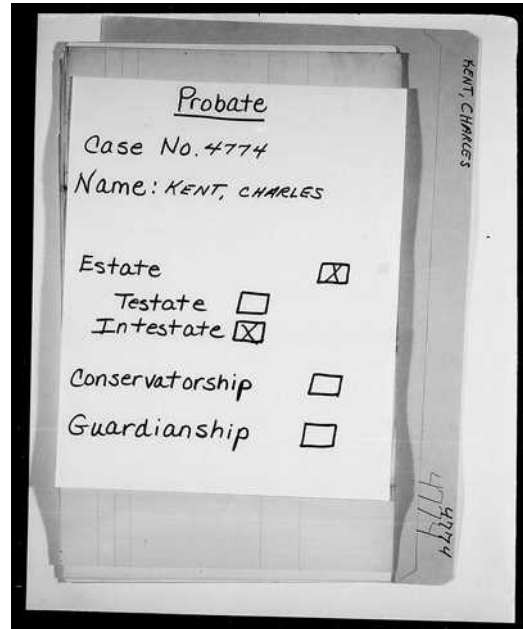 Probate
Case No. 4774
Name: KENT, CHARLES
Estate X
Testate
Intestate X
Conservatorship
Guardianship
KENT, CHARLES
4774
4774